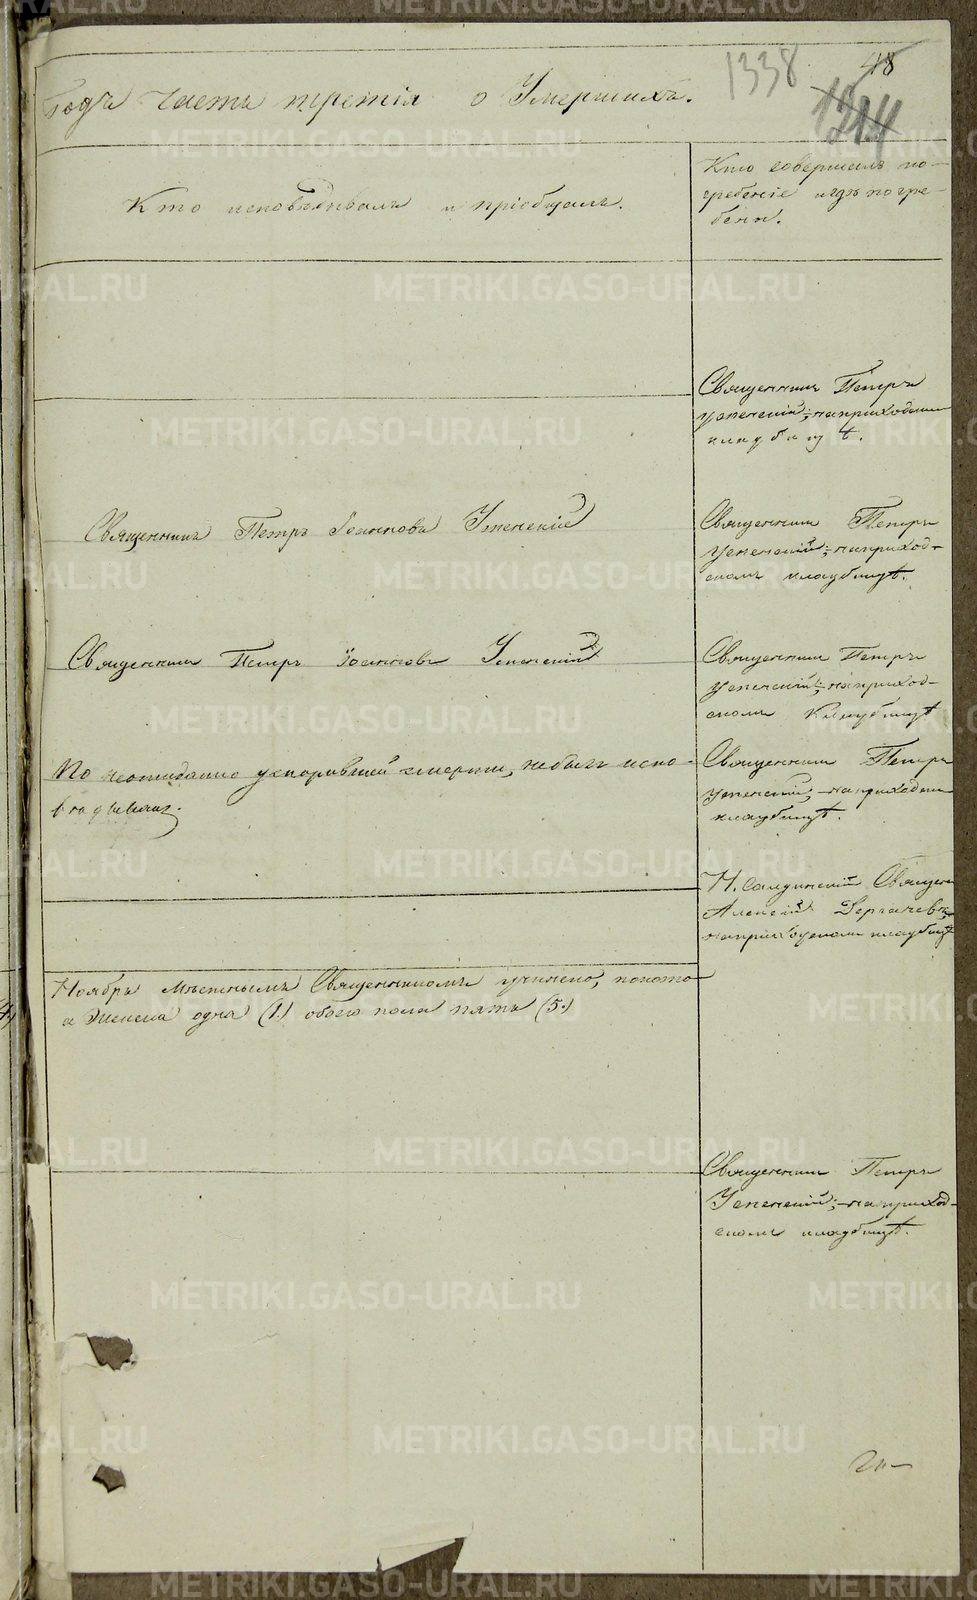 1338
48
1314
Годъ часть третія о Умершихъ.
Кто исповѣдывалъ и пріобщалъ.
Кто совершалъ по-
гребеніе и гдѣ погре-
бены.
Священникъ Петръ
Успенскій; на приходском
кладбищѣ.
Священникъ Петръ Іоанновъ Успенскій
Священник Петръ
Успенскій; на приход-
скомъ кладбищѣ.
Священник Петръ Іоаннов Успенскій
Священник Петръ
Успенскій; на приход-
ском кладбищѣ
По неожиданно ускорившей смерти, не былъ испо-
вѣдыван.
Священник Петръ
Успенскій; на приходском
кладбищѣ.
Н. Салдинскій Священ
Алексій Дергачевъ,
на приходском кладбищѣ
Ноябрь мѣстнымъ Священникомъ учинено,
а Женска одна (1.) обоего пола пять (5.)
Священник Петръ
Успенскій; на приход-
скомъ кладбищѣ.
METRIKI.GASO-URAL.RU